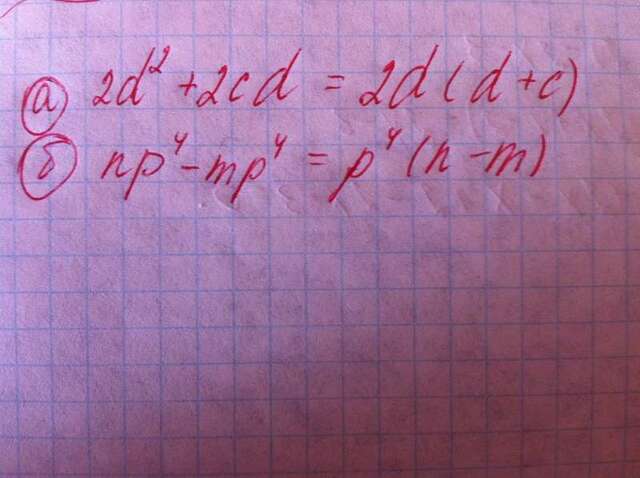 а) 2d² + 2cd = 2d(d+c)
б) np⁴ - mp⁴ = p⁴(n-m)